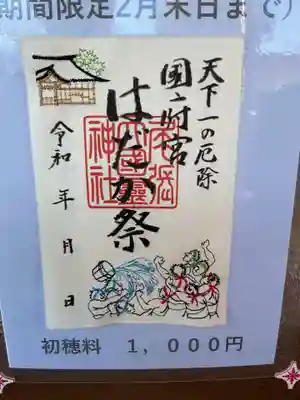 期間限定2月末日まで)
天下一の厄除
国府宮
はだか祭
尾張
大國霊
神社
令和 年 月 日
初穂料 1,000円